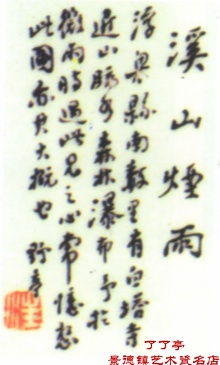 溪山煙雨
浮梁縣南數里有白塔寺
近山臨水森林瀑布予於
微雨時過此見之心常憶想
此圖亦其大概也 野亭
了了亭
景德镇艺术瓷名店